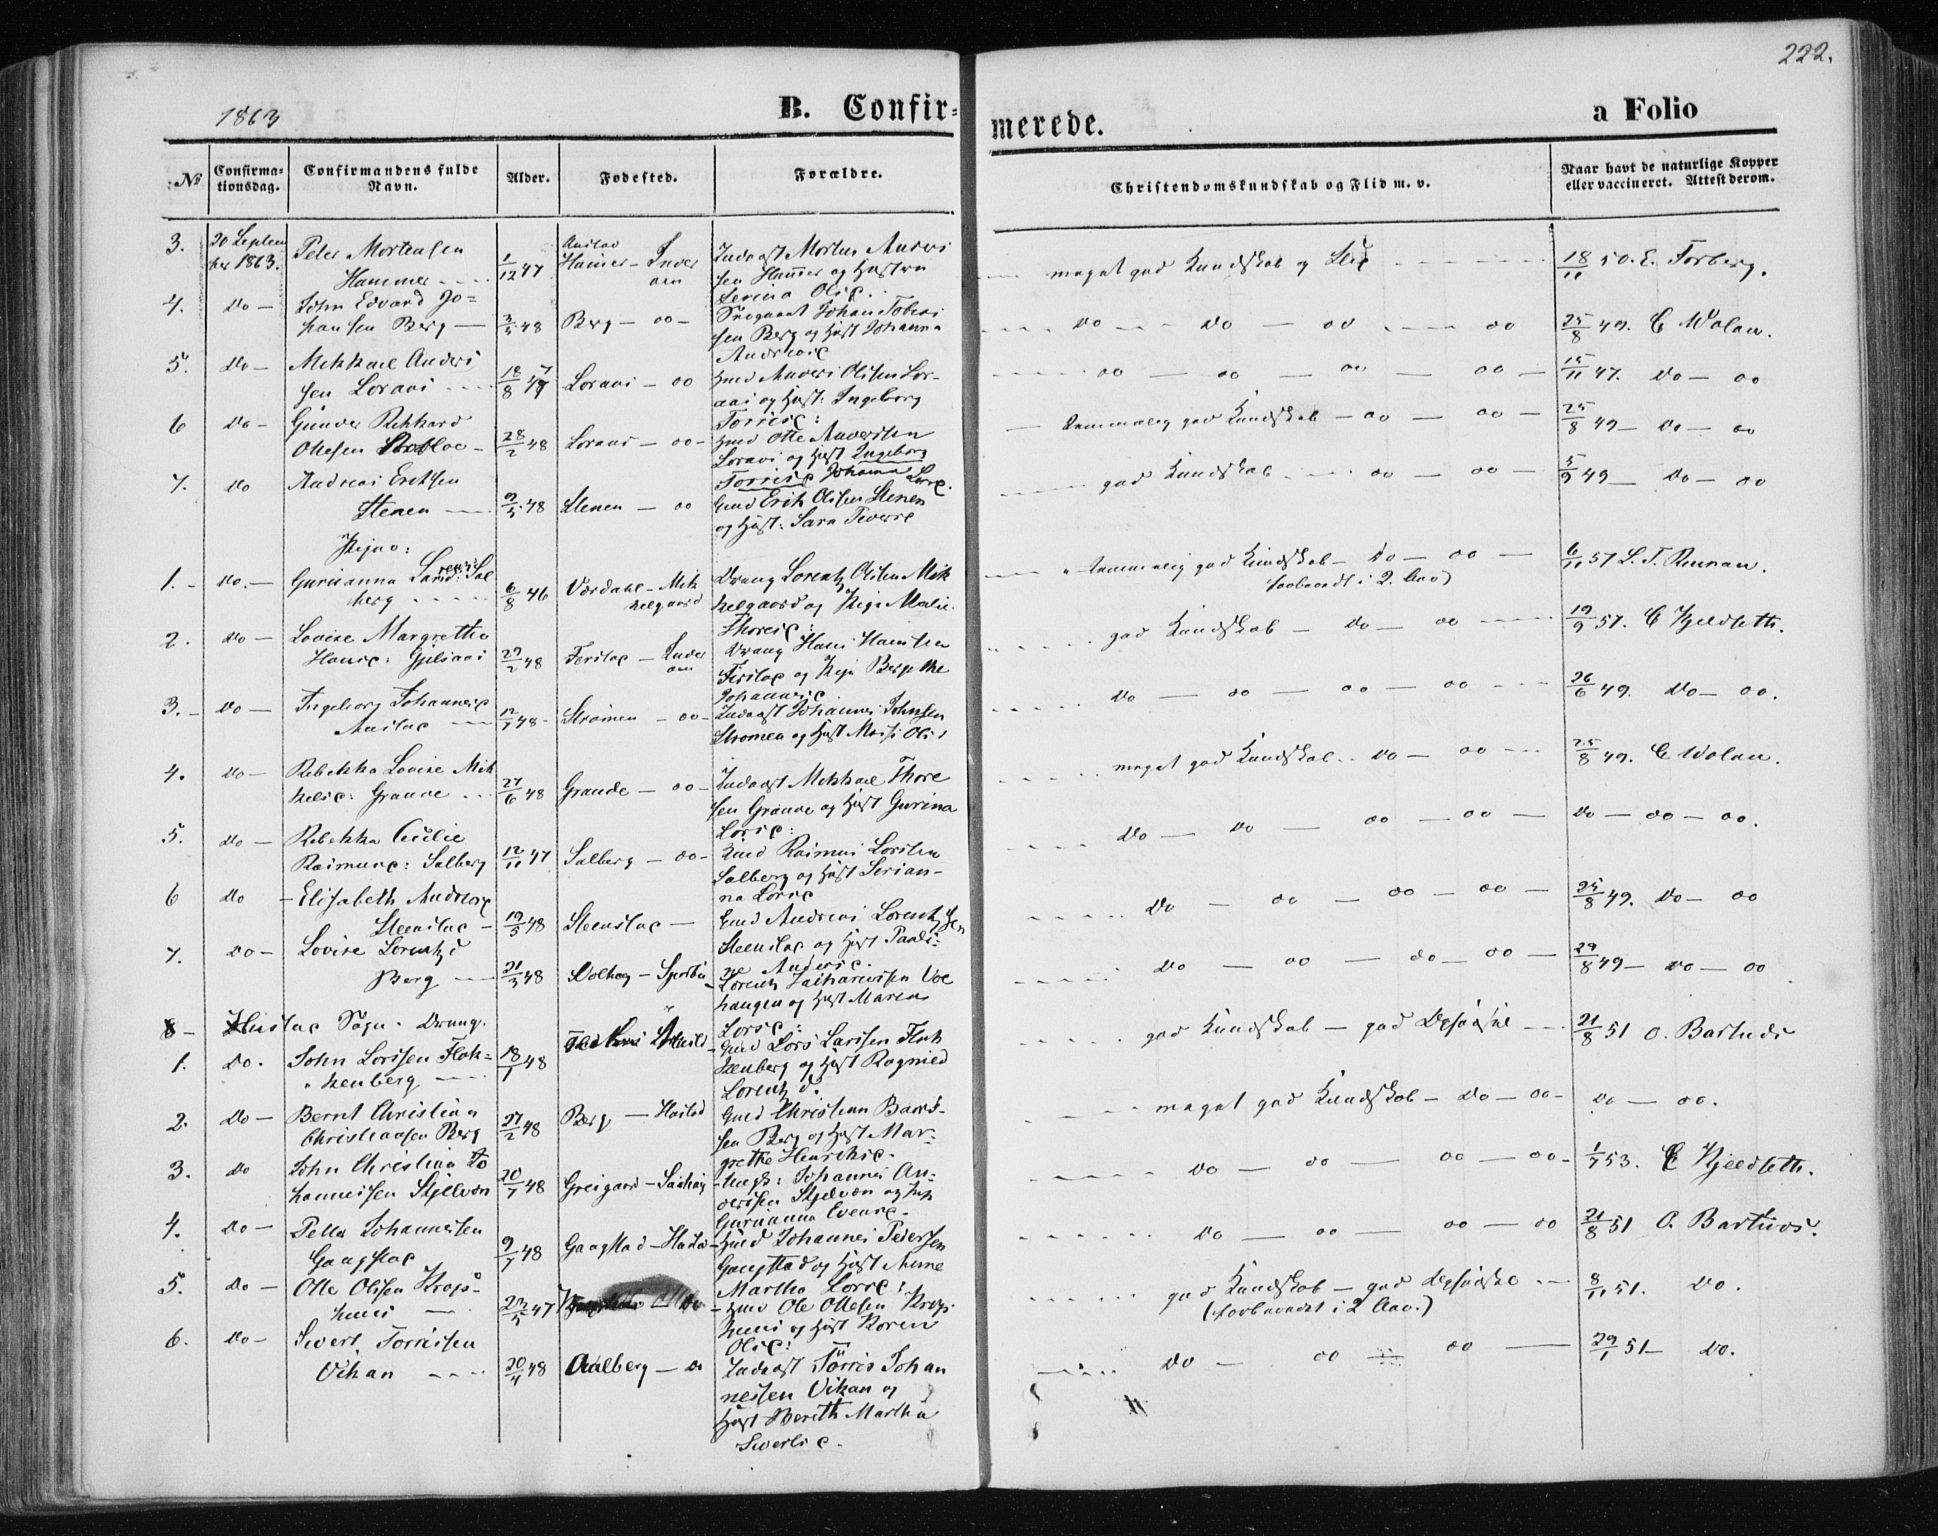 222.
1863
B. Confir-
merede.
a Folio
No
Confirma-
tionsdag.
Confirmandens fulde
Navn.
Alder.
Fødested.
Forældre.
Christendomskundskab og Flid m. v.
Naar havt de naturlige Kopper
eller vaccineret. Attest derom.
3.
20 Septem
ber 1863.
Peter Mortensen
Hammer
1/12 47
Hamer - Inder
øen
Indorst Morten Anders
sen Hamer og Hustru
Serina Olsd.
meget god Kundskab og Flid
18/11 50. E. Forberg.
4.
do -
John Edvard Jo-
hansen Berg
3/5 48
Berg - do -
Johan Tobias
sen Berg og Hust Johanna
do - do - do - do
25/8 49. C Wolan.
5.
do -
Mikkael Anders
senLoraas
18/8 47
Loraas - do
Gmd Anders Olsen Lor-
aas og Hust: Ingeborg
Torrisd:
do - do - do - do -
15/11 47. do - do
6
do -
Gunder Rikhard
Ottesen
28/2 48
Loraas - do -
Gmd Otte Andersen
Loraas og Hust Ingeborg
Torrisd Johanna Larsd.
temmelig god Kundskab - do - do -
25/8 49 - do - do
7.
do
Andreas Eriksen
Stenen
9/5 48
Stenen - do
Gmd Erik Olsen Stenen
og Hust: Sara Siversd
god Kundskab - do - do -
5/9 49 - do - do
Piger:
1. -
do. -
Gurianna Lorents: Sal
berg
6/8 46
Værdalen - Mik
kelgaard
Dreng Lorents Olsen Mik
kelgaard og Pige Malie
Thoresd:
temmelig god Kundskab - do - do -
6/11 57 L. T. Rennan.
2.
do -
Lovise Margrethe
Hansd: Gjilsaas
29/2 48
Ferstad - Inder
øen
Dreng Hans Hansen
Ferstad og Pige Bergithe
Johannesd.
god Kundskab - do - do
19/9 57. C Hjeldseth.
3. -
do -
Ingeborg Johannesd
Austad
12/1 48 -
Strømen - do -
Indorst Johannes Johnsen
Strømen og Hust Marsi Olsd
do - do - do - do
26/6 49. do - do.
4.
do -
Rebekka Lovise Mik
kelsd: Grande
27/6 48
Grande - do -
Indorst Mikkael Thore
sen Grande og Hust Gurina
Larsd:
meget god Kundskab - do - do
25/8 49. C Wolan.
5.
do -
Rebekka Cecilie
Rasmusd: Salberg
12/11 47
Salberg - do -
Gmd Rasmus Larsen
Salberg og Hust Serian-
na Larsd
do - do - do - do -
do - do - do.
6
do
Elisabeth Andreasd
Steenstad
19/5 48
Steenstad -
Gmd Andreas Lorentzsen
Steenstad og Hust Pauli-
ne Andersd.
do - do - do - do -
25/8 49. do - do
7.
do -
Lovise Lorentzd
Berg
21/5 48
Volhaug - Sparbu
Lorentz Zachariassen Vol
haugen og Hust Maren
Larsd:
do - do - do - do -
29/8 49 - do - do
8 -
Hustad Sogn. Dreng.
1.
do.
John Larssen Flek-
kenberg
18/1 48
Gmd Lars Larssen Flek
kenberg og Hust Ragnild
Lorentzd.
god Kundskab - god Opførsel
21/8 51 O. Bartnes
2.
do -
Bernt Christian
Christiansen Berg
27/2 48
Berg - Hustad
Gmd Christian Bardo-
sen Berg og Hust Mar-
grethe Henriksd.
meget god Kundskab - do - do -
do - do.
3.
do
John Christian Jo
hannessen Stjelvæn
20/7 48
Greigaard - Sakshaug
Johannes An-
derssen Stjelvæn og
Gurianna Evensd.
do - do - do - do -
1/7 53. C Hjeldseth.
4.
do -
Peller Johannessen
Gaugstad
9/7 48
Gaugstad - Hustad
Gmd Johannes Pedersen
Gaugstad og Hust Anne
Martha Larsd:
do - do - do - do
21/8 51 O. Bartnes.
5.
do -
Otte Olsen Krogs-
huus
23/5 47
Gmd Ole Ottesen Krogs
huus og Hust Karen
Olsd:
god Kundskab - god Opførsel
(forberedt i 2 Aar.)
8/11 51. do.
6.
do -
Sivert Torrissen
Vikan
20/4 48
Aalberg - do
Indorst Torris Johan
nessen Vikan og
Hust Bereth Martha
Sivertsd.
do - do - do
29/1 51 - do.